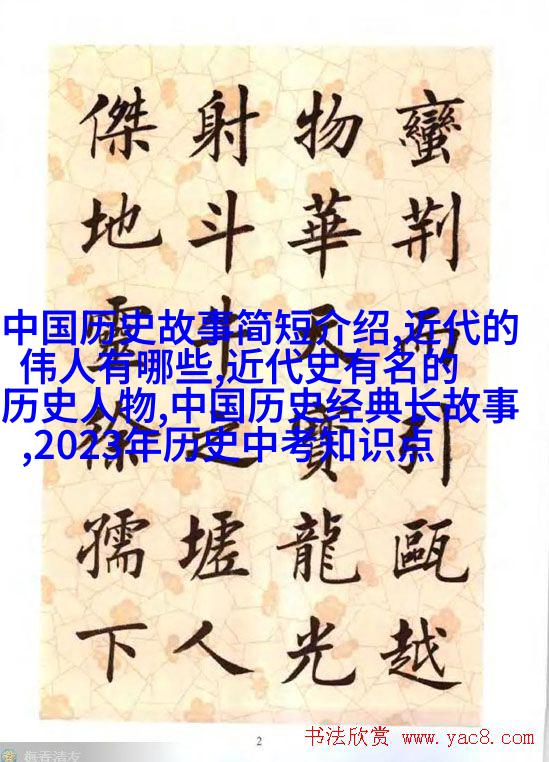 蠻荊而引甌越
物華天寶龍光
射斗牛之墟人
傑地靈徐孺下
中国历史故事简短介绍,近代的
伟人有哪些,近代史有名的
历史人物,中国历史经典长故事
,2023年历史中考知识点
2
书法欣赏 www.yac8.com